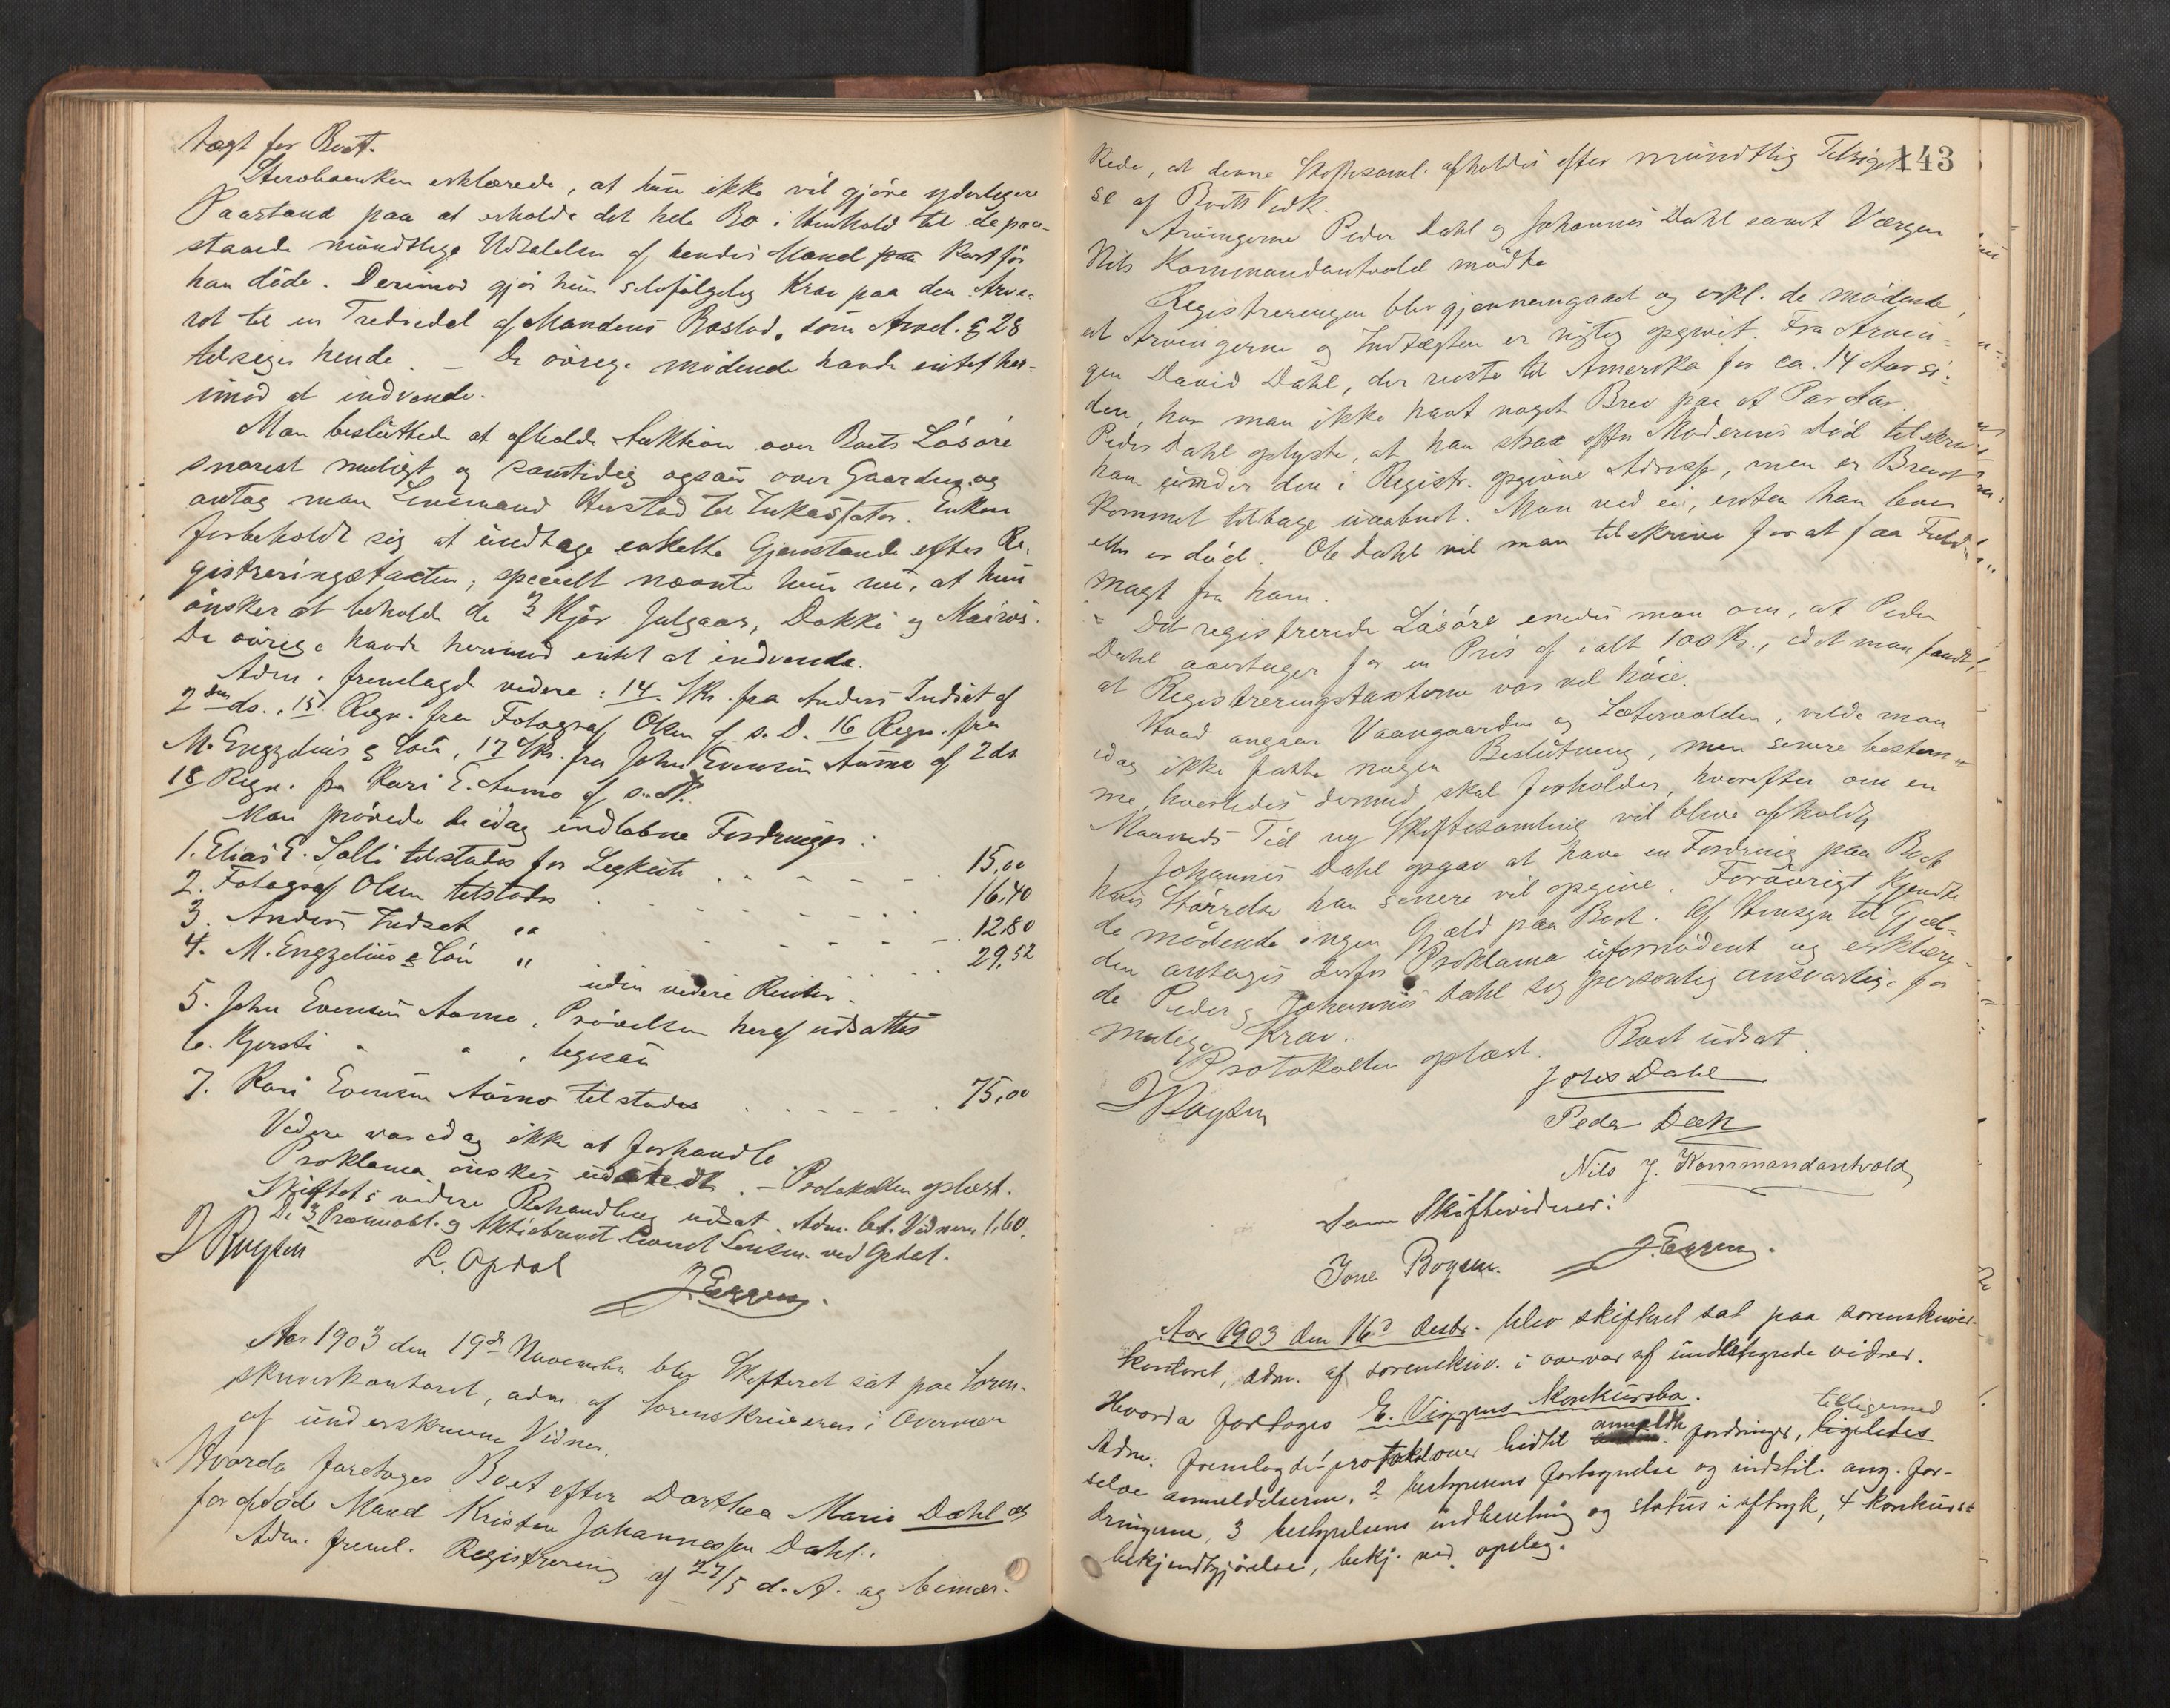 tægt for Boet.
Sterboenken erklærede, at hun ikke vil gjøre yderligere
Paastand paa at erholde det hele Bo i Henhold til de paa-
staaede mundtlige Udtalelser af hendes Mand kort før
han døde. Derimod gjør hun selvfølgelig Krav paa den Arve-
ret til en Trediedel af Mandens Boslod, som Arvel. § 28
tilsiger hende. – De øvrige mødende havde intet her-
imod at indvende.
Man besluttede at afholde Auktion over Boets Løsøre
snarest muligt og samtidig ogsaa over Gaarden og
antog man Lensmand til Inkassator. Enken
forbeholdt sig at undtage enkelte Gjenstande efter Re-
gistreringstaxten; specielt nævnte hun nu, at hun
ønsker at beholde de 3 Kjør Julgaas, Dokki og
De øvrige havde herimod intet at indvende.
Adm. fremlagde videre: 14. Skr. fra Anders Indset af
2den ds., 15 Regn. fra Fotograf Olsen af s. D. 16 Regn. fra
M. Engzelius & Søn, 17 Skr. fra John Evensen Aamo af 2 ds
18 Regn. fra Kari E. Aamo af s. D.
Man prøvede de idag indløbne Fordringer:
1. Elias E. Solli tilstodes for Ligkiste . . . . 15,00
2. Fotograf Olsen tilstodes . . . . 16,40
3. Anders Indset " . . . . 12,80
4. M. Engzelius & Søn " . . . . 29,52
uden videre Renter.
5. John Evensen Aamo, Prøvelsen heraf udsattes
6. Kjersti " " , ligesaa
7. Kari Evensen Aamo tilstodes . . . . 75,00
Videre var idag ikke at forhandle.
Proklama ønskes udstedt. – Protokollen oplæst.
Skiftets videre Behandling udsat. Adm. bet. Vidnerne 1,60.
De 3 Præmieobl. og Aktiebrevet leveret Lensm. ved Opdal.
L. Opdal
J. Eggen.
Aar 1903 den 19de November blev Skifteret sat paa Soren-
skriverkontoret, adm. af Sorenskriveren i Overvær
af underskrevne Vidner.
Hvorda foretoges Boet efter Dorthea Marie Dahl og
før afdøde Mand Kristen Johannessen Dahl.
Adm. freml. Registrering af 27/5 d. A. og bemær-
143
kede, at denne Skiftesaml. afholdes efter mundtlig Tilsigel-
se af Boets Vedk.
Arvingerne Peder Dahl og Johannes Dahl samt Værgen
Nils Kommandantvold mødte
Registreringen blev gjennemgaaet og erkl. de mødende,
at Arvingerne og Indtægten er rigtig opgivet. Fra Arvin-
gen David Dahl, der reiste til Amerika for ca. 14 Aar si-
den, har man ikke havt noget Brev paa et Par Aar.
Peder Dahl oplyste, at han strax efter Moderens Død tilskrev
ham under den i Registr. opgivne Adresse, men er Brevet
kommet tilbage uaabnet. Man ved ei, enten han lever
eller er død. Ole Dahl vil man tilskrive for at faa Fuld-
magt fra ham.
Det registrerede Løsøre enedes man om, at Peder
Dahl overtager for en Pris af ialt 100 Kr., idet man fandt,
at Registreringstaxterne var vel høie.
Hvad angaar Vaangaarden og Sætervolden, vilde man
idag ikke fatte nogen Beslutning, men senere bestem-
me, hvorledes dermed skal forholdes, hvorefter om en
Maaneds Tid ny Skiftesamling vil blive afholdt.
Johannes Dahl opgav at have en Fordring paa Boet
hvis Størrelse han senere vil opgive. Forøvrigt kjendte
de mødende ingen Gjæld paa Boet. Af Hensyn til Gjæl-
den antoges derfor Proklama ufornødent og erklære-
de Peder og Johannes Dahl sig personlig ansvarlige for
mulige Krav.
Protokollen oplæst. Boet udsat.
Johs Dahl
Peder Dahl
Nils J. Kommandantvold
Som Skiftevidner:
Tone Boysen. J. Eggen.
Aar 1903 den 16de desbr. blev skifteret sat paa sorenskriver-
kontoret, adm. af sorenskriv. i overvær af undertegnede vidner.
Hvorda foretoges E. Viggens konkursbo.
Adm. fremlagde 1 protokol over hidtil anmeldte fordringer, tilligemed
selve anmeldelserne, 2 bestyrerens fortegnelse og indstil. ang. for-
dringerne, 3 bestyrelsens indberetning og status i aftryk, 4 konkurs-
bekjendtgjørelse, bekj. ved opslag.